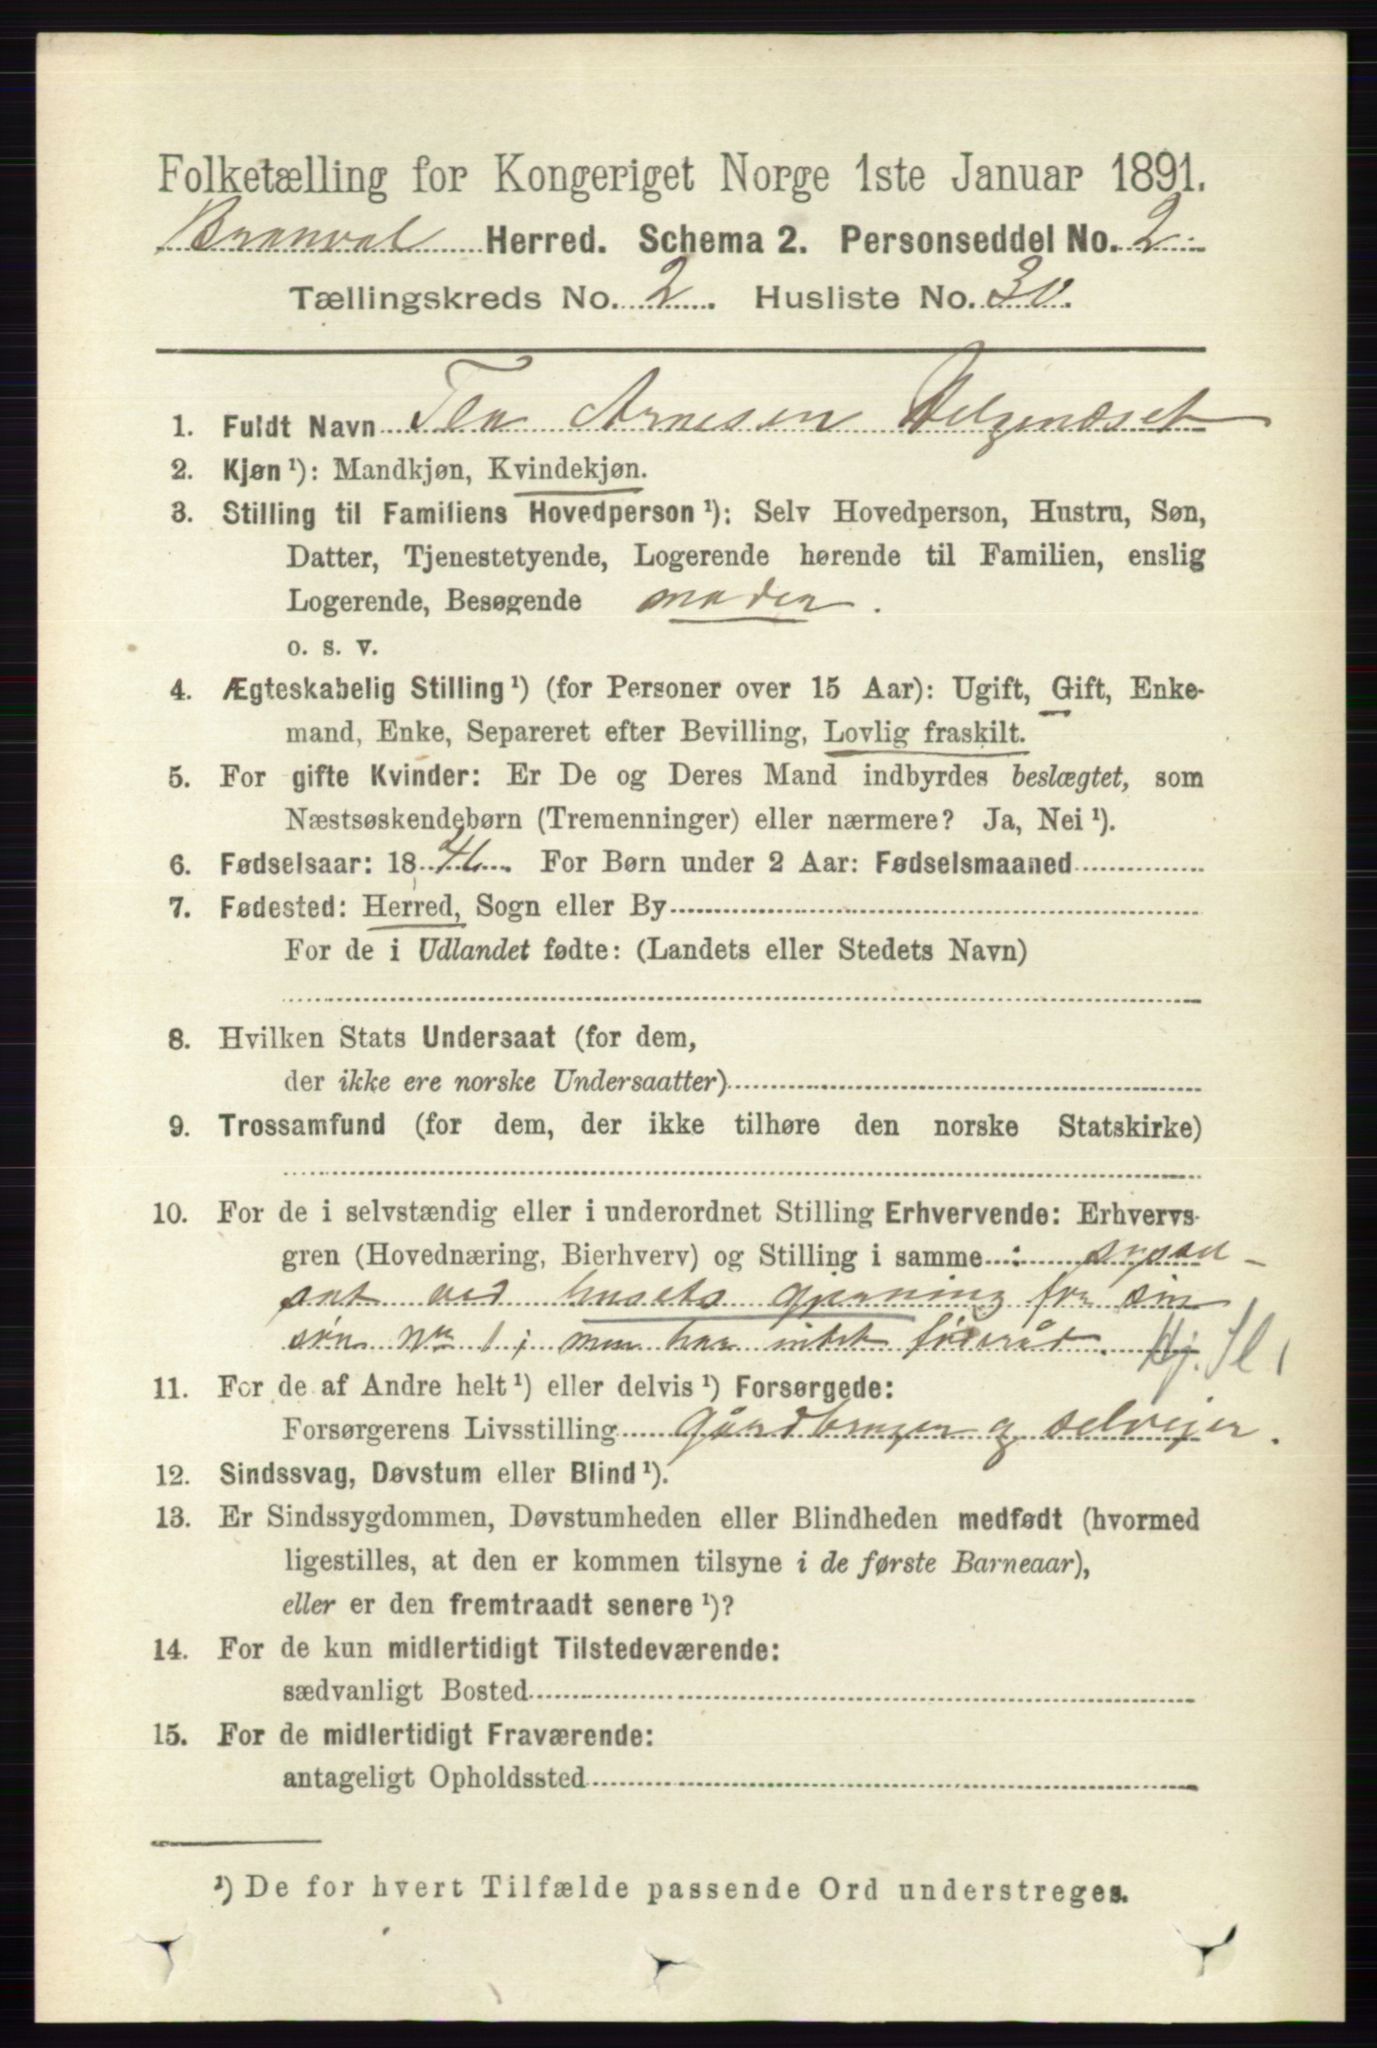 Folketælling for Kongeriget Norge 1ste Januar 1891.
Branval Herred. Schema 2. Personseddel No. 2.
Tællingskreds No. 2. Husliste No. 30.
1. Fuldt Navn Tea Arnesen Helgenæset
2. Kjøn ¹): Mandkjøn, Kvindekjøn.
3. Stilling til Familiens Hovedperson ¹): Selv Hovedperson, Hustru, Søn,
Datter, Tjenestetyende, Logerende hørende til Familien, enslig
Logerende, Besøgende moder.
o. s. v.
4. Ægteskabelig Stilling ¹) (for Personer over 15 Aar): Ugift, Gift, Enke-
mand, Enke, Separeret efter Bevilling, Lovlig fraskilt.
5. For gifte Kvinder: Er De og Deres Mand indbyrdes beslægtet, som
Næstsøskendebørn (Tremenninger) eller nærmere? Ja, Nei ¹).
6. Fødselsaar: 1846. For Børn under 2 Aar: Fødselsmaaned
7. Fødested: Herred, Sogn eller By
For de i Udlandet fødte: (Landets eller Stedets Navn)
8. Hvilken Stats Undersaat (for dem,
der ikke ere norske Undersaatter)
9. Trossamfund (for dem, der ikke tilhøre den norske Statskirke)
10. For de i selvstændig eller i underordnet Stilling Erhvervende: Erhvervs-
gren (Hovednæring, Bierhverv) og Stilling i samme :
sat ved husets gjerning for sin
søn No 1; men har intet føderåd. Hj. Sl 1
11. For de af Andre helt ¹) eller delvis ¹) Forsørgede:
Forsørgerens Livsstilling Gårdbruger og selveier.
12. Sindssvag, Døvstum eller Blind ¹).
13. Er Sindssygdommen, Døvstumheden eller Blindheden medfødt (hvormed
ligestilles, at den er kommen tilsyne i de første Barneaar),
eller er den fremtraadt senere ¹)?
14. For de kun midlertidigt Tilstedeværende:
sædvanligt Bosted
15. For de midlertidigt Fraværende:
antageligt Opholdssted
¹) De for hvert Tilfælde passende Ord understreges.